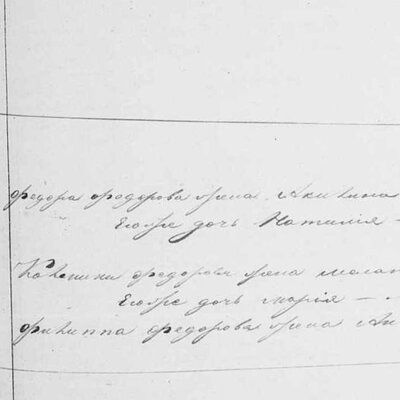 Федора Федорова жена Акилина
Егоже дочь Наталия —
Каленики Федорова жена Мелан
Егоже дочь Марія —
Филиппа Федорова жена Ак